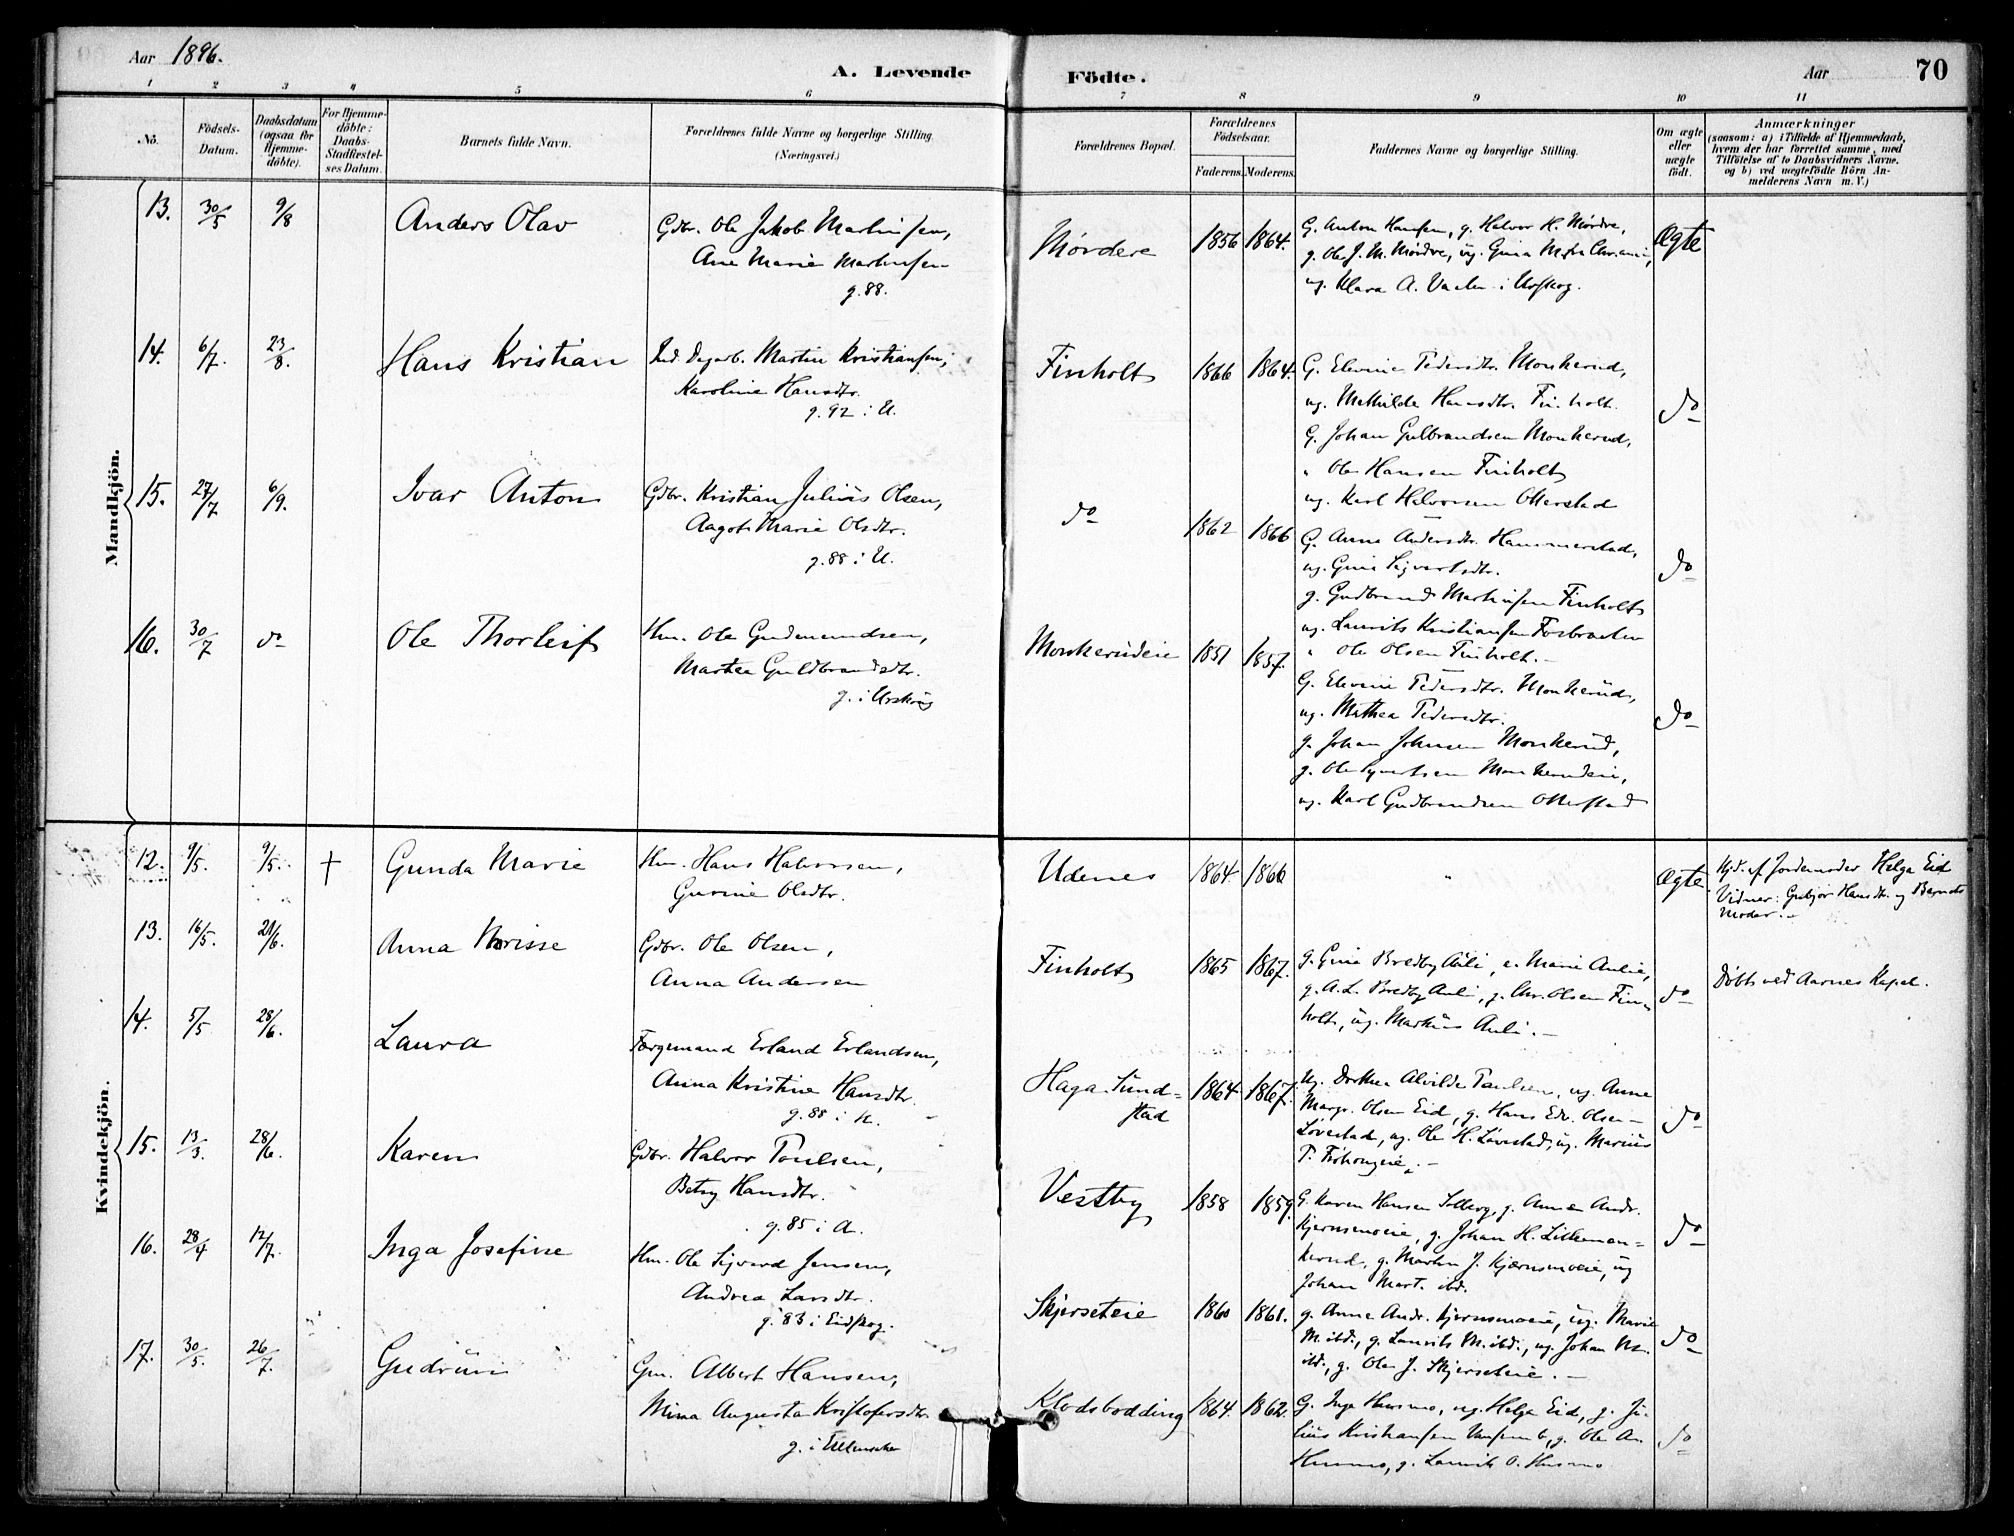 Aar 1896.
A. Levende
Födte.
Aar
70
1 2 3 4 5 6 7 8 9 10 11
No.
Födsels-
Datum.
Daabsdatum
(ogsaa for
Hjemme-
döbte).
For Hjemme-
döbte:
Daabs-
Stadfæstel-
ses Datum.
Barnets fulde Navn.
Forældrenes fulde Navne og borgerlige Stilling.
(Næringsvei.)
Forældrenes Bopæl.
Forældrenes
Födselsaar.
Faderens. Moderens.
Faddernes Navne og borgerlige Stilling.
Om ægte
eller
uægte
födt.
Anmærkninger
(saasom: a) i Tilfælde af Hjemmedaab,
hvem der har forrettet samme, med
Tilföielse af to Daabsvidners Navne,
og b) ved uægtefödte Börn An-
melderens Navn m. V.)
Mandkjön.
13. 30/5 9/8 Anders Olav
Gdbr. Ole Jakob Martinsen,
Ane Marie Martinsen
g. 88.
Mørdere 1856 1864.
G. Anton Hansen, g. Halvor H. Mørdre,
g. Ole J. M. Mørdre, ug. Gina
ug. Klara A. i Urskog.
Ægte
14. 6/7. 23/8. Hans Kristian
Ind. Dagarb. Martin Kristiansen,
Karoline Hansdtr.
g. 92 i U.
Finholt 1866 1864.
G. Elevine Pedersdtr. Monkerud,
ug. Mathilde Hansdtr. Finholt.
G. Johan Gulbrandsen Monkerud,
" Ole Hansen Finholt
ug. Karl Halvorsen Ollerstad
do
15. 27/7 6/9. Ivar Anton
Gdbr. Kristian Julius Olsen,
Aagot Marie Olsdtr.
g. 88 i U.
do 1862 1866
G. Anna Andersdtr. Hammerstad,
ug. Gina Sigvartsdtr.
g. Gudbrand Martinsen Finholt
ug. Laurits Kristiansen Fosbraaten
" Ole Olsen Finholt.-
do
16. 30/7 do Ole Thorleif
Hm. Ole Gudmundsen,
Marthea Guldbrandsdtr.
g. i Urskog
Monkerudeie 1851 1857.
G. Elevine Pedersdtr. Monkerud,
ug. Mathea Pedersdtr.
g. Johan Johnsen Monkerud,
g. Ole Syvertsen Monkerudeie,
ug. Karl Gudbrandsen Ollerstad
do
Kvindekjön.
12. 9/5. 9/5. † Gunda Marie
Hm. Hans Halvorsen,
Gurine Olsdtr.
Udenes 1864. 1866
"
Ægte.
Hjd. af Jordemoder Helga Eid
Vidner: Gubjør Hansdtr. og Barnets
Moder.-
13. 16/5. 21/6. Anna Norisse
Gdbr. Ole Olsen,
Anna Andersen
Finholt 1865 1867.
g. Gina Bredby Auli, e. Marie Aulie,
g. A. L. Bredby Auli, g. Chr. Olsen Fin-
holt, ug. Markus Auli.-
do
Døbt ved Aarnes Kapel.
14. 5/5 28/6. Laura
Færgemand Erland Erlandsen,
Anna Kristine Hansdtr.
g. 88 i N.
Haga Sund-
stad 1864 1867.
Ug. Dorthea Alvilde Paulsen, ug. Anne
Margr. Olsen Eid, g. Hans Edv. Olsen
Løvestad, ug. Ole H. Løvestad, ug. Marius
P.
do
15. 13/3. 28/6. Karen
Gdbr. Halvor Poulsen,
Betsy Hansdtr.
g. 85 i A.
Vestby 1858 1859
G. Karen Hansen Solberg, g. Anne Andr.
Kjernsmoeie, g. Johan H. Lilleman-
kerud, g. Martin J. Kjærnsmoeie, ug
Johan Mart. ibd.
do
16. 28/4 12/7. Inga Josefine
Hm. Ole Sigvard Jensen,
Andrea Larsdtr.
g. 83 i Eidskog.
Skjerseteie 1860 1861.
g. Anne Andr. Kjernsmoeie, ug. Marie
M. ibd., g. Laurits M. ibd., ug. Johan M.
ibd., g. Ole J. Skjerseteie.-
do
17. 30/5. 26/7. Gudrun
Gm. Albert Hansen,
Mina Augusta Kristofersdtr
g. i Ullensaker
Klodsbodding 1864. 1862.
G. Inga Husmo, ug. Helga Eid, g. Ju-
lius Kristiansen g. Ole A.
Husmo, g. Laurits O. Husmo
do